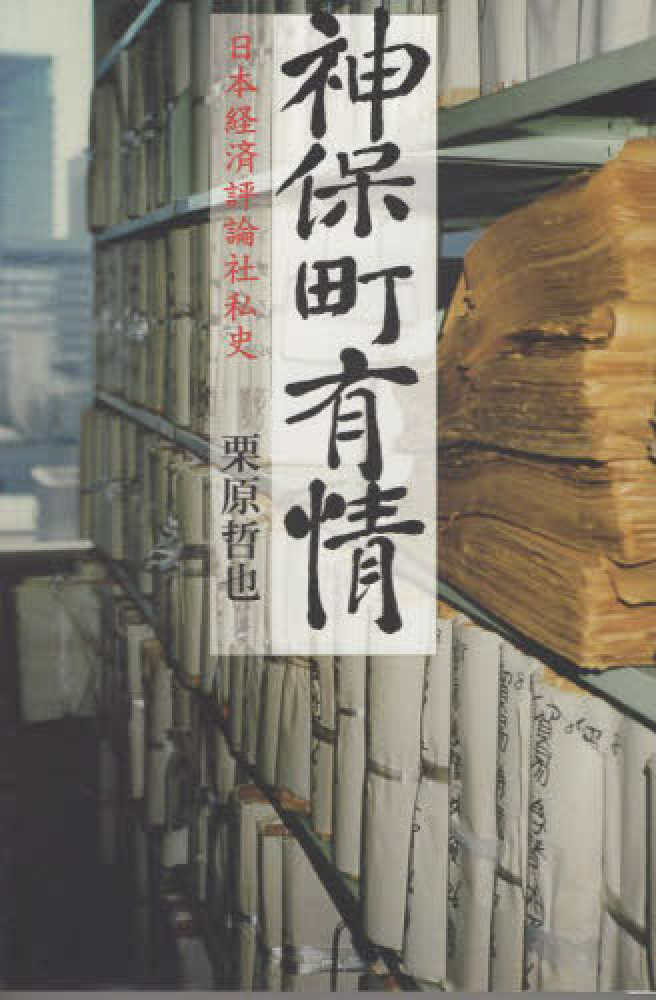 神保町有情
日本経済評論社私史
栗原哲也